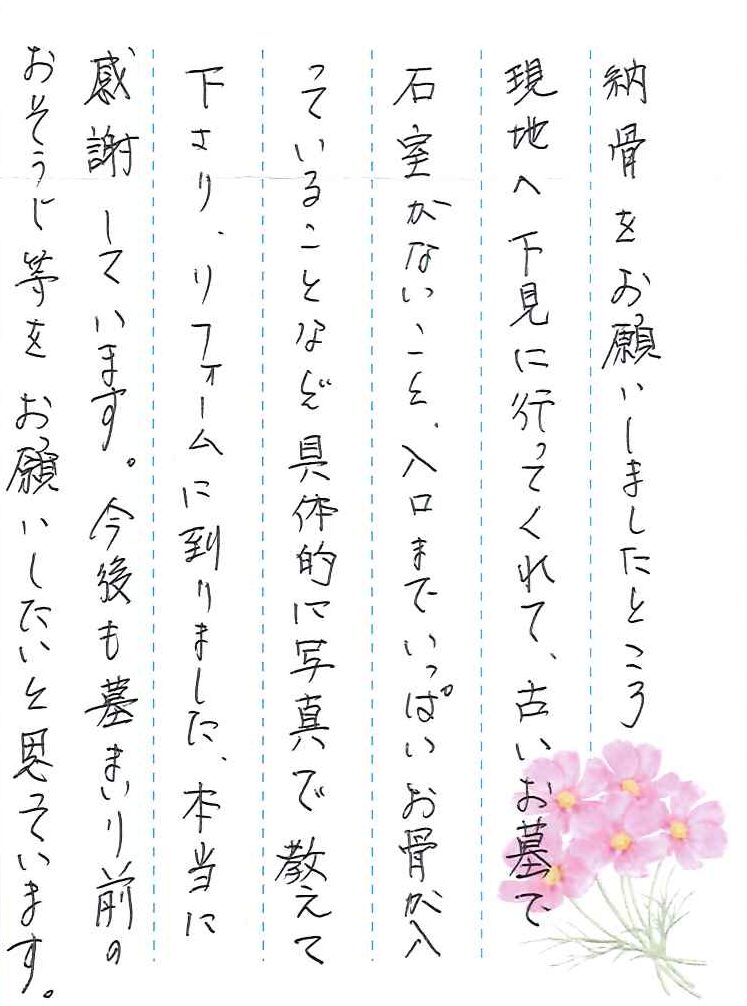 納骨をお願いしましたところ
現地へ下見に行ってくれて、古いお墓で
石室がないこと、入口までいっぱいお骨が入
っていることなど具体的に写真で教えて
下さり、リフォームに到りました、本当に
感謝しています。今後も墓まいり前の
おそうじ等をお願いしたいと思っています。